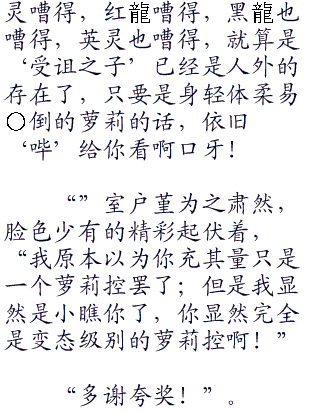 灵嘈得，红龍嘈得，黑龍也
嘈得，英灵也嘈得，就算是
‘受诅之子’已经是人外的
存在了，只要是身轻体柔易
〇倒的萝莉的话，依旧
‘哔’给你看啊口牙！
“”室户堇为之肃然，
脸色少有的精彩起伏着，
“我原本以为你充其量只是
一个萝莉控罢了；但是我显
然是小瞧你了，你显然完全
是变态级别的萝莉控啊！”
“多谢夸奖！”。